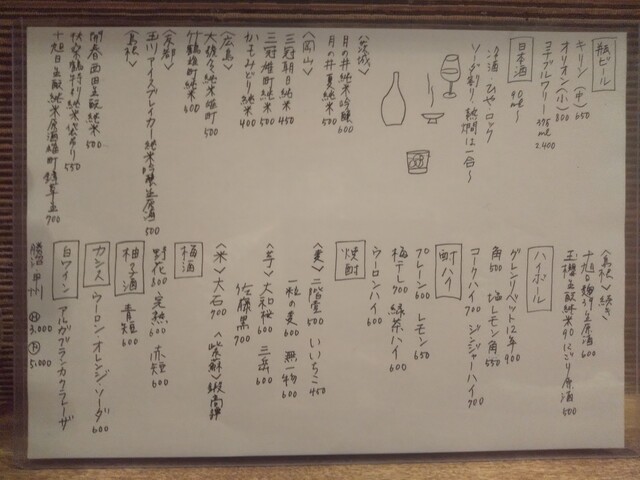 瓶ビール
キリン(中) 650
オリオン(小) 800
コエドブルワリー 375ml 2,400
日本酒 90ml〜
冷酒 ひや ロック
ソーダ割り 熱燗は一合〜
〈茨城〉
月の井純米吟醸 600
月の井夏純米 500
〈岡山〉
三冠朝日純米 450
三冠雄町純米 500
かすみどり純米 400
〈広島〉
大號令純米雄町 500
竹鶴雄町純米 500
〈京都〉
玉川アイスブレイカー純米吟醸生原酒 500
〈島根〉
開春西田生酛純米 500
扶桑鶴特別純米袋吊り 550
十旭日生酛純米原酒雄町 700
〈島根〉続き
十旭日 生原酒 600
玉櫻生酛純米90にごり原酒 500
ハイボール
グレンリベット12年 900
角 500 塩レモン角 550
コークハイ 700 ジンジャーハイ 700
酎ハイ
プレーン 600 レモン 650
梅干し 700 緑茶ハイ 600
ウーロンハイ 600
焼酎
〈麦〉二階堂 500 いいちこ 450
一粒の麦 600 無一物 600
〈芋〉大和桜 600 三岳 600
佐藤黒 700
〈米〉大石 700 〈紫蘇〉鍛高譚
梅酒
野花 800 完熟 600 赤短 600
柚子酒 青短 600
カシス ウーロン・オレンジ・ソーダ 600
白ワイン アルガブランカクラレーザ
勝沼甲州 3,000 5,000